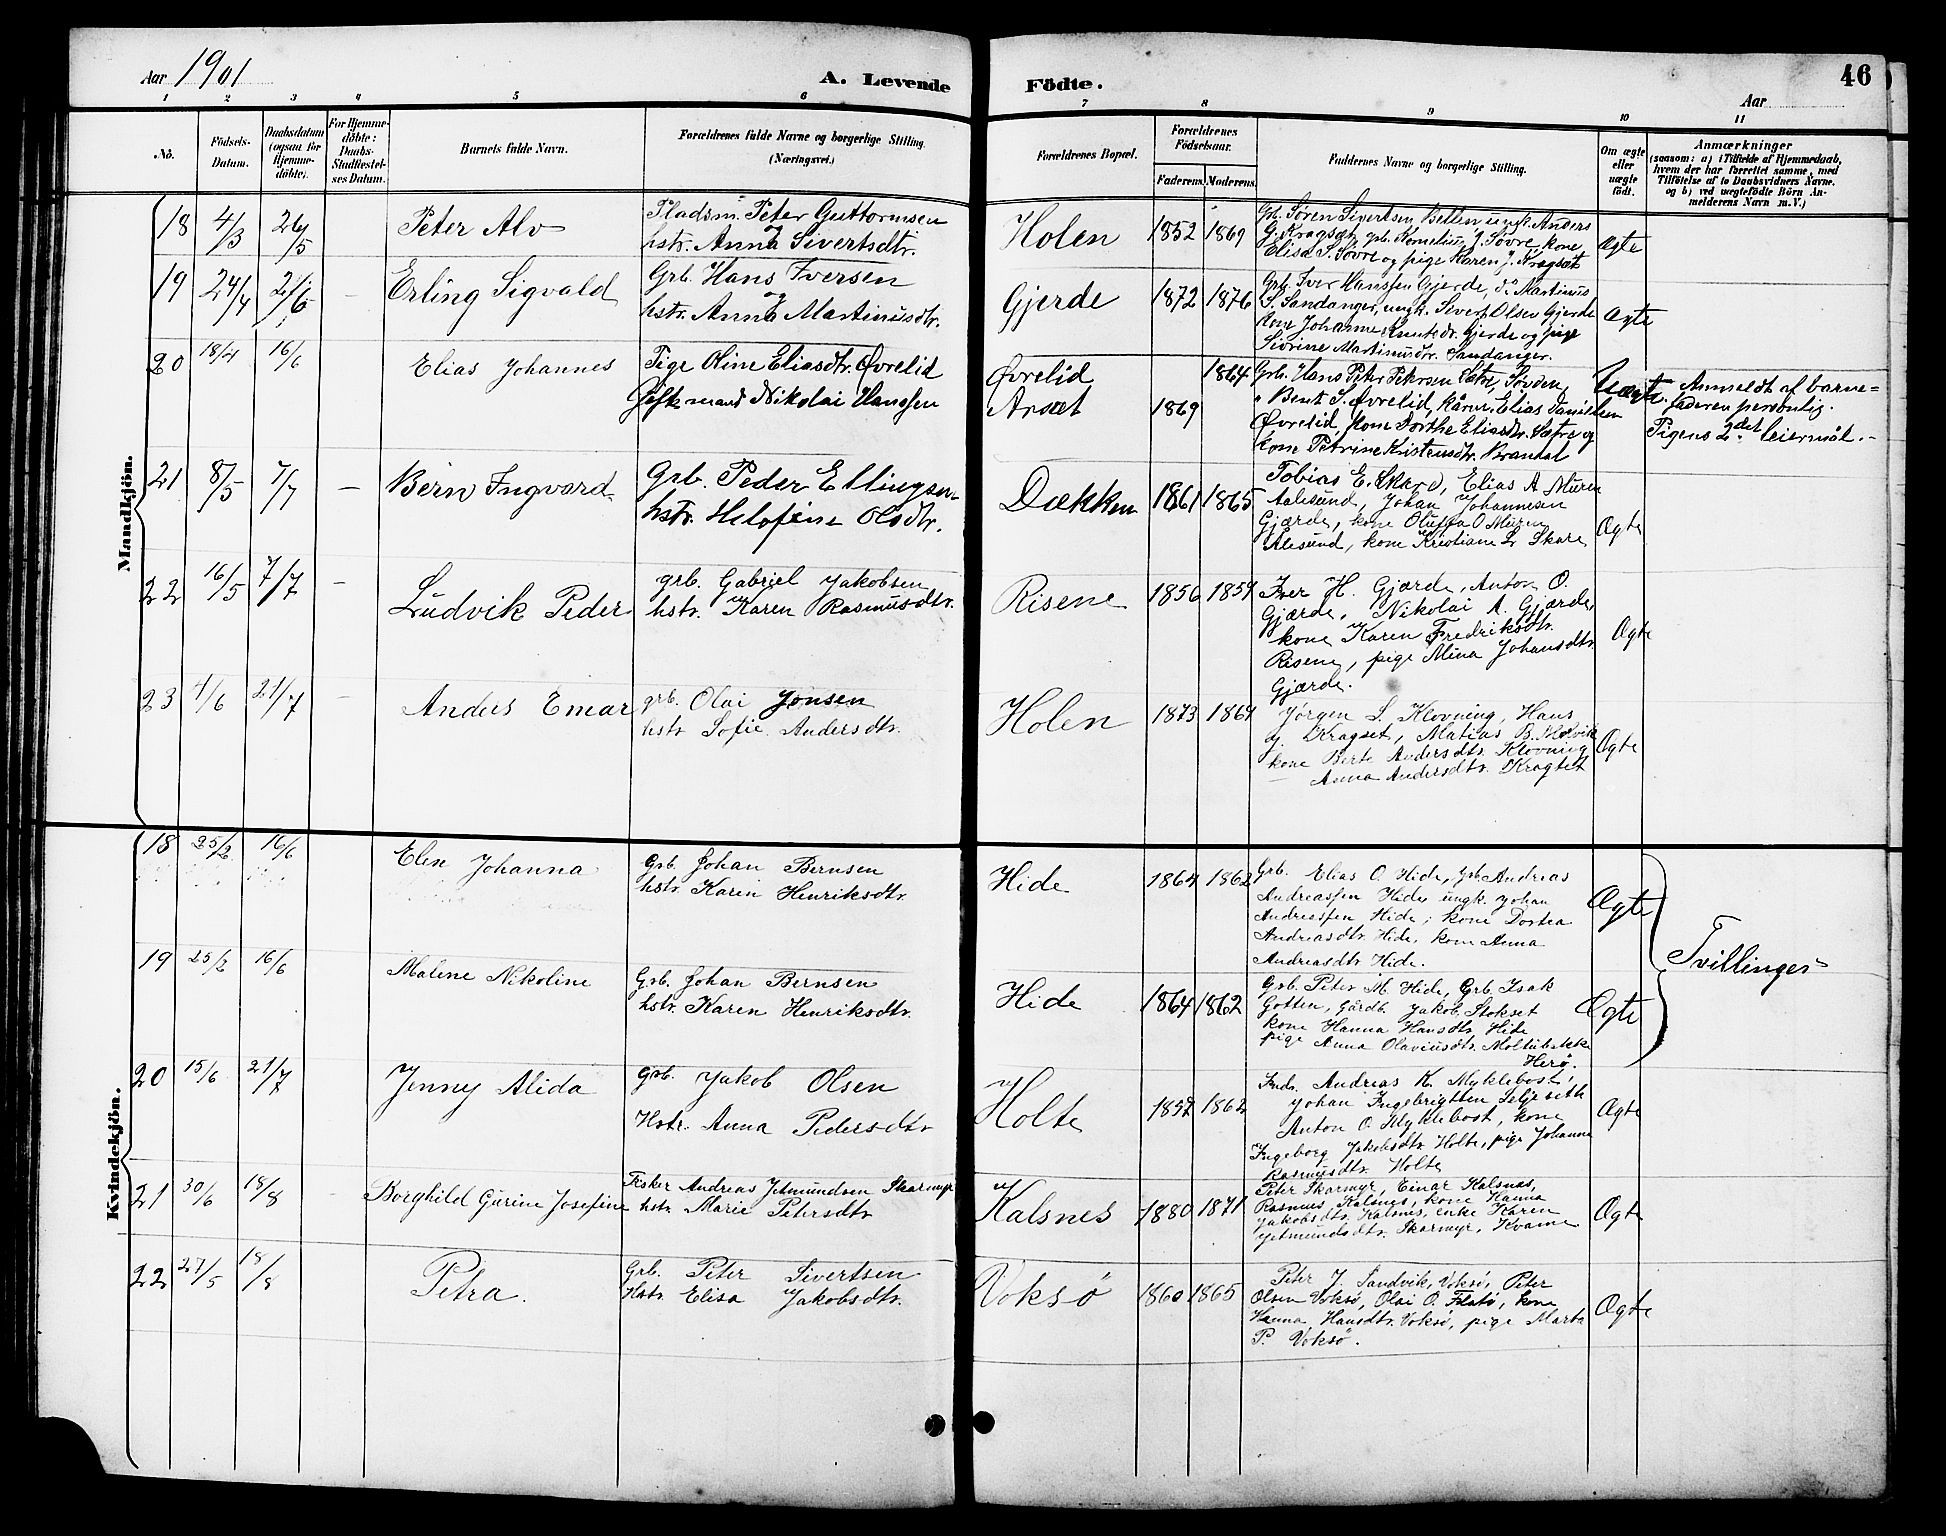 Aar 1901
A. Levende Födte.
46
Aar
1 2 3 4 5 6 7 8 9 10 11
No.
Födsels-Datum.
Daabsdatum (ogsaa for Hjemme-döbte).
For Hjemme-döbte: Daabs-Stadfæstel-ses Datum.
Barnets fulde Navn.
Forældrenes fulde Navne og borgerlige Stilling.
(Næringsvei.)
Forældrenes Bopæl.
Forældrenes Födselsaar.
Faderens. Moderens.
Faddernes Navne og borgerlige Stilling.
Om ægte eller uægte födt.
Anmærkninger
(saasom: a) i Tilfælde af Hjemmedaab,
hvem der har forrettet samme, med
Tilföielse af to Daabsvidners Navne,
og b) ved uægtefödte Börn An-
melderens Navn m.V.)
Mandkjön.
18 4/3 26/5 Peter Alv
Pladsm. Peter Guttormsen
og
hstr. Anna Sivertsdtr.
Holen 1852 1869
Grb. Søren Sivertsen ungk. Anders
G. Kragsæt, grb. Kornelius J. Søvre, kone
Elisa S. Søvre og pige Karen J. Kragsæt
Ægte
19 24/4 – Erling Sigvald
Grb. Hans Iversen
og
hstr. Anna Martinusdtr.
Gjerde 1872 1876
Grb. Iver Hanssen Gjerde, do Martinus
S. Sandanger, ungk. Sivert Olsen Gjerde
kone Johanne Knutsdr. Gjerde og pige
Sivrine Martinusdtr. Sandanger.
Ægte
20 18/4 16/6 Elias Johannes
Pige Oline Eliasdtr. Øvrelid
Gift mand Nikolai Hanssen
Øvrelid 1864
Aršæt 1869
Grb. Hans Peter Petersen Sætre, Søvden,
" Bent S. Øvrelid, kårm. Elias Danielsen
Øvrelid, kone Dorthe Eliasdtr. Sætre og
kone Petrine Kristensdtr. Brandal
Uægte.
Anmeldt af barne=
faderen personlig.
Pigens 2det leiermål.-
21 8/5 7/7 – Bern Ingvard
Grb. Peder Ellingsen
hstr. Olsdtr.
Dækken 1861 1865
Tobias E. Skare, Elias A Muren
Aalesund, Johan Johannesen
Gjærde, kone Oluffa O Muren
Alesund, kone Kristiane Skare
Ægte
22 16/5 7/7 – Ludvik Peder
grb. Gabriel Jakobsen
hstr. Karen Rasmusdtr.
Risene 1856 1859
Iver H. Gjærde, Anton O.
Gjærde, Nikolai A. Gjærde,
kone Karen Fredriksdtr.
Risene, pige Mina Johansdtr.
Gjærde.
Ægte
23 4/6 21/7 – Anders Emar
grb. Olai Jonsen
hstr Sofie Andersdtr.
Holen 1873 1869
Jørgen S. Klovning, Hans
J. Kragset, Matias B.
kone Berte Andersdtr. Klovning
— Anna Andersdtr. Kragset
Ægte
Kvindekjön.
18 25/2 16/6 Elen Johanna
Grb. Johan Bernsen
hstr. Karen Henriksdtr.
Hide 1864 1862
Grb. Elias O. Hide, grb. Andreas
Andreassen Hide, ungk. Johan
Andreassen Hide, kone Dortea
Andreasdtr. Hide, kone Anna
Andreasdtr Hide.
Ægte
Tvillinger
19 25/2 16/6 Malene Nikoline
Grb. Johan Bernsen
hstr. Karen Henriksdtr.
Hide 1864 1862
Grb. Peter M. Hide, Grb. Isak
Gotten, Gårdb. Jakob Stokset
kone Hanna Hansdtr. Hide
pige Anna Olaviusdtr. Moltubakke
Herø.
Ægte
20 15/6 21/7 Jenny Alida
Grb. Jakob Olsen
Hstr. Anna Pedersdtr
Holte 1852 1862
Andreas K. Myklebost,
Johan Ingebrigtsen Seljeseth
Anton O. Myklebost, kone
Ingeborg Jakobsdtr. Holte, pige Johanna
Rasmusdtr. Holte
Ægte
21 30/6 18/8 – Borghild Gurine Josefine
Fisker Andreas Jetmundsen Skarmyr
hstr. Marie Petersdtr
Kalsnes 1880 1871
Peter Skarmyr, Einar Kalsnes,
Rasmus Kalsnes, kone Hanna
Jakobsdtr. Kalsnes, enke Karen
Jetmundsdtr. Skarmyr, Kvame
Ægte
22 27/5 18/8 Petra.
Grb. Peter Sivertsen
Hstr. Elisa Jakobsdtr.
Voksø 1860 1865
Peter J. Sandvik, Voksø, Peter
Olsen Voksø, Olai O. Flatø, kone
Hanna Hansdtr. Voksø, pige Marta
P. Voksø.
Ægte